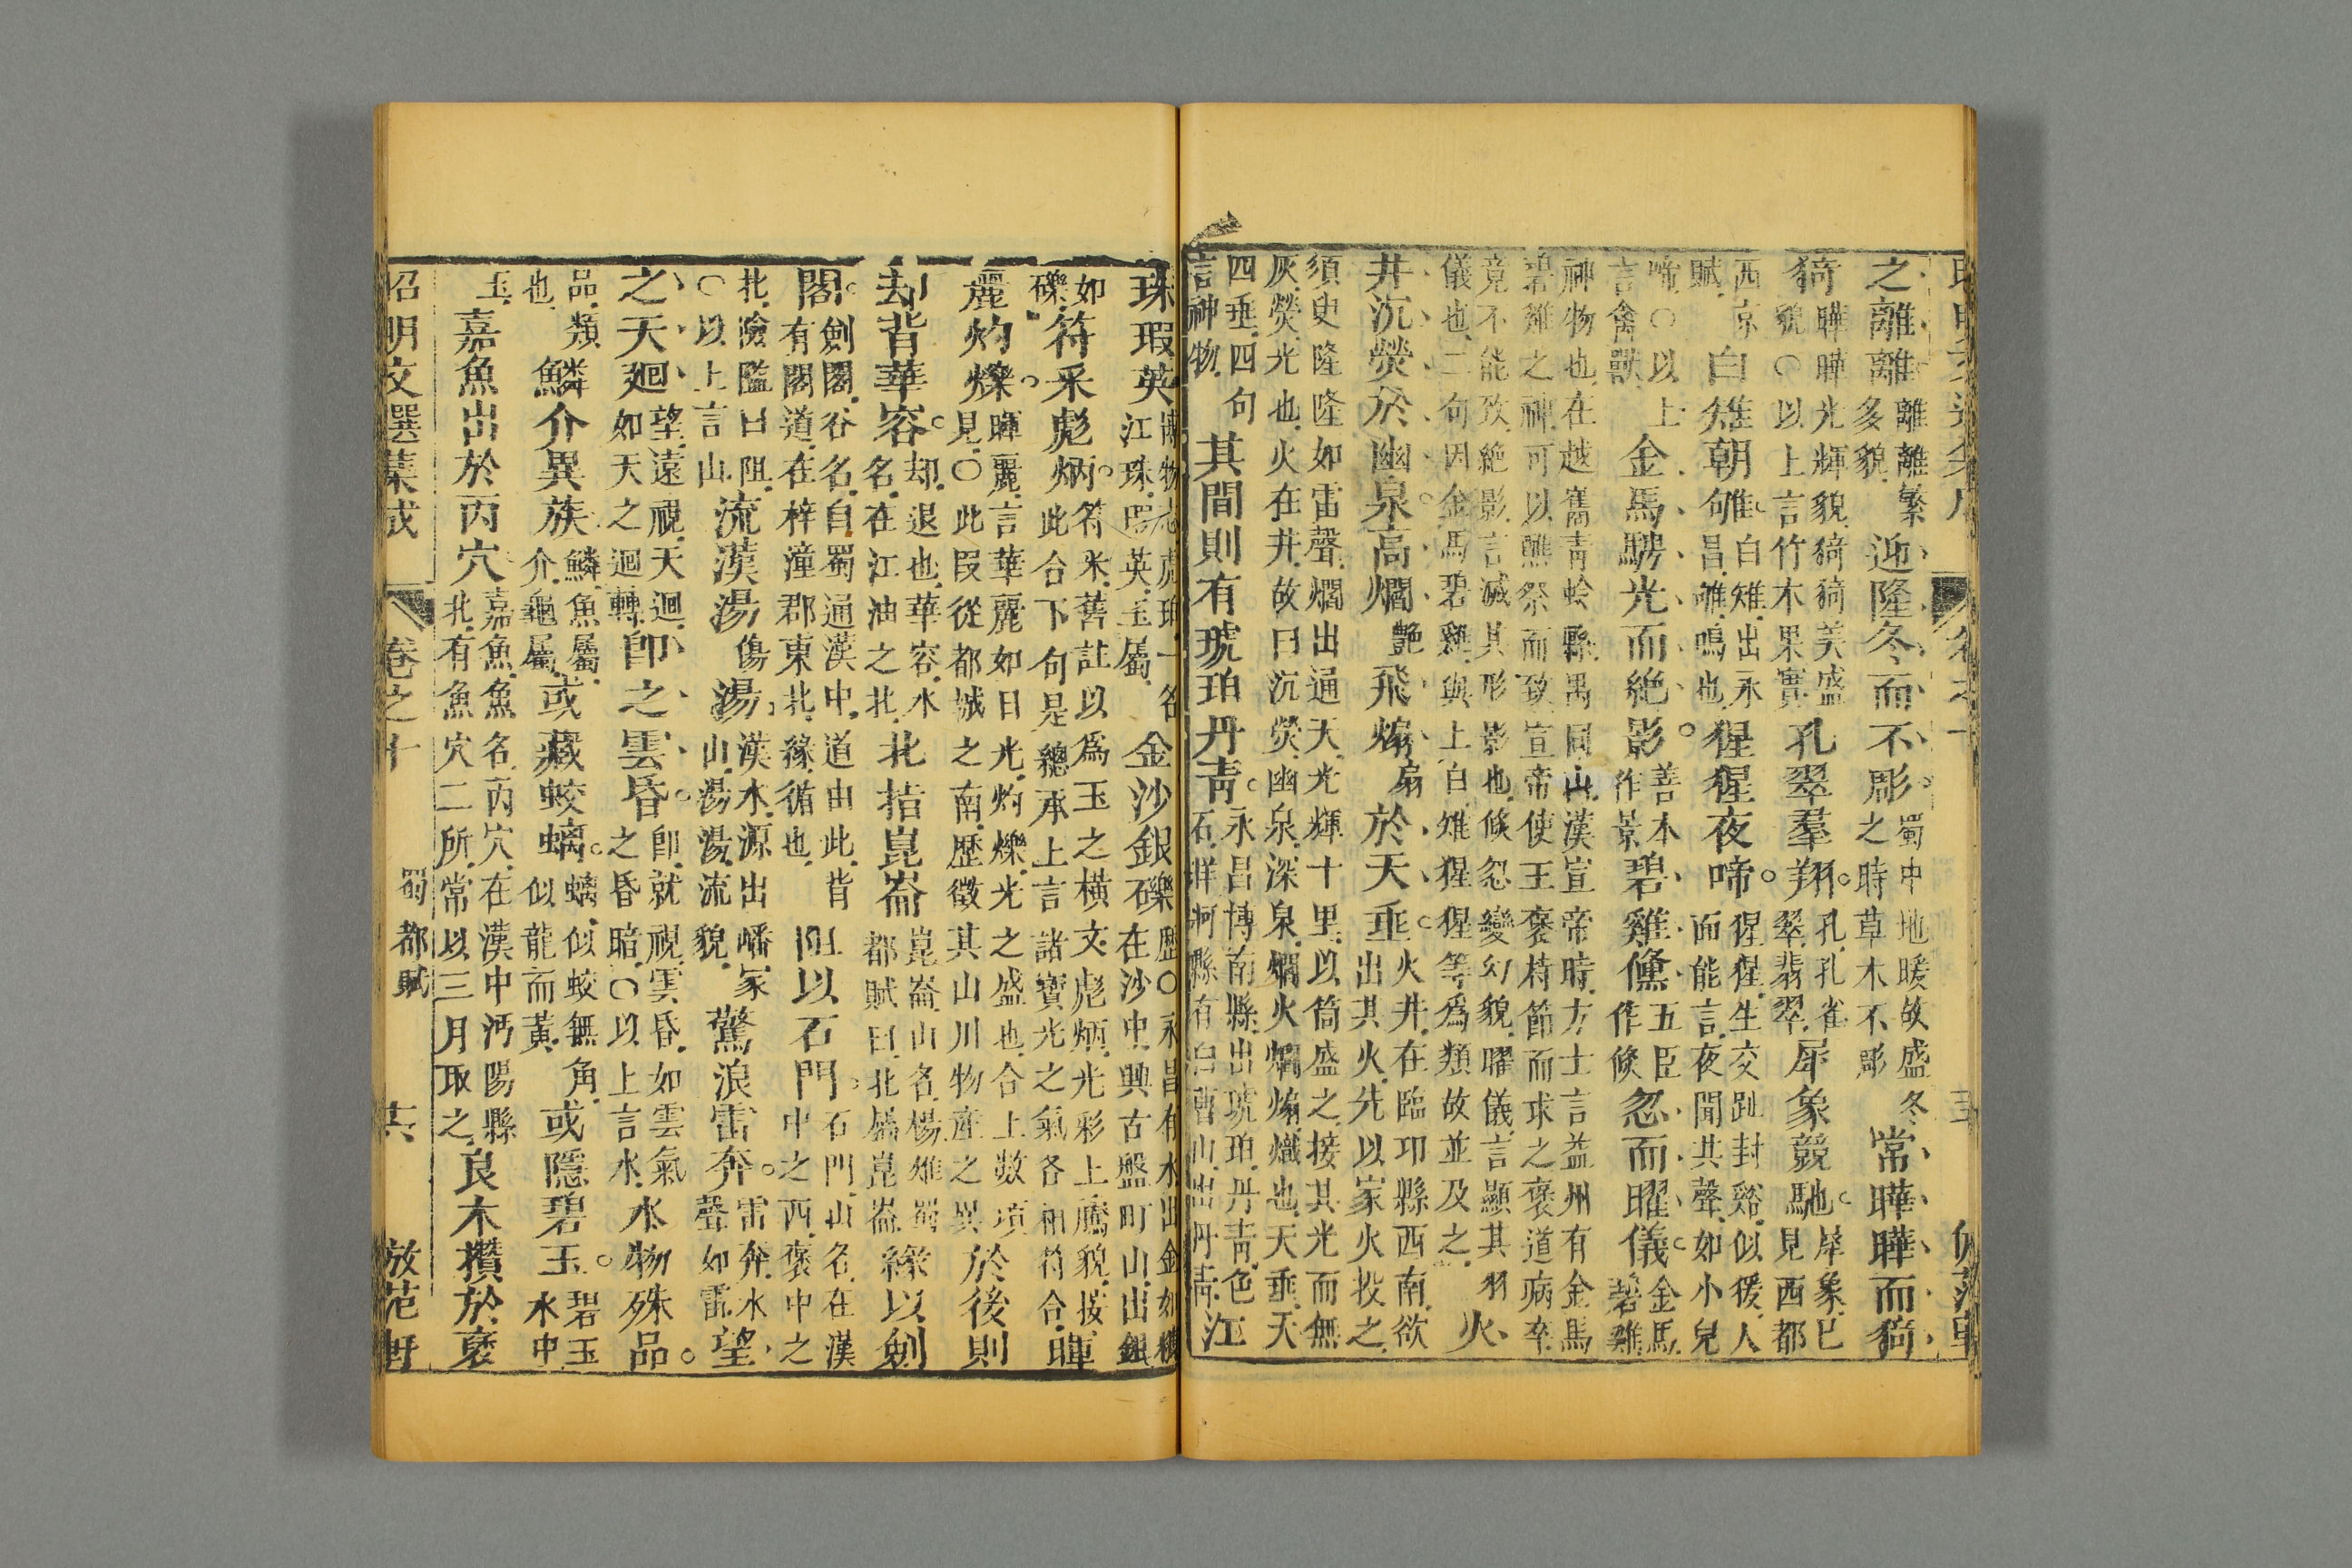 之離離離離繁多貌迎隆冬而不彫蜀中地暖故盛冬之時草木不彫常曄曄而猗
猗曄曄光輝貌猗猗美盛貌〇以上言竹木果實孔翠羣翔孔孔雀翠翡翠犀象競馳犀象已見西都
西京賦白雉朝雊白雉出永昌雊雉鳴也猩猩夜啼猩猩生交趾封谿似猨人面能言夜聞其聲如小兒
啼〇以上言禽獸金馬騁光而絕影善本作景碧雞儵五臣作倏忽而曜儀金馬碧雞
神物也在越巂青蛉縣禺同山漢宣帝時方士言益州有金馬碧雞之神可以醮祭而致宣帝使王褒持節而求之褒道病卒
竟不能致絕影言滅其形影也倏忽變幻貌曜儀言顯其羽儀也二句因金馬碧雞與上白雉猩猩等爲類故並及之火
井沉熒於幽泉高爓艷飛煽扇於天垂火井在臨邛縣西南欲出其火先以家火投之
須史隆隆如雷聲爓出通天光輝十里以筒盛之接其光而無灰熒光也火在井故曰沉熒幽泉深泉爓火爓煽熾也天垂天
四垂四句言神物其間則有琥珀丹青永昌博南縣出琥珀丹青色石牂牁縣有白曹山出丹青江
珠瑕英博物志虎珀一名江珠瑕英玉屬金沙銀礫歷〇永昌有水出金如糠在沙中興古盤町山出銀
如礫符采彪炳符采舊註以爲玉之橫文彪炳光彩上騰貌按此合下句是總承上言諸寶光之氣各相符合暉
麗灼爍暉麗言華麗如日光灼爍光之盛也合上數項見〇此段從都城之南歷徵其山川物產之異於後則
却背華容却退也華容水名在江油之北北指崑崙崑崙山名楊雄蜀都賦曰北屬崑崙緣以劍
閣劍閣谷名自蜀通漢中道由此背有閣道在梓潼郡東北緣循也阻以石門石門山名在漢中之西褒中之
北險隘曰阻〇以上言山流漢湯傷湯漢水源出嶓冢山湯湯流貌驚浪雷奔雷奔水聲如雷望
之天廻望遠視天迴如天之迴轉卽之雲昏卽就視雲昏如雲氣之昏暗〇以上言水水物殊品
品類也鱗介異族鱗魚屬介龜屬或藏蛟螭螭似蛟無角似龍而黃或隱碧玉碧玉水中
玉嘉魚出於丙穴嘉魚魚名丙穴在漢中沔陽縣北有魚穴二所常以三月取之良木攢於褒
昭明文選集成 卷之十 蜀都賦 六 放范軒